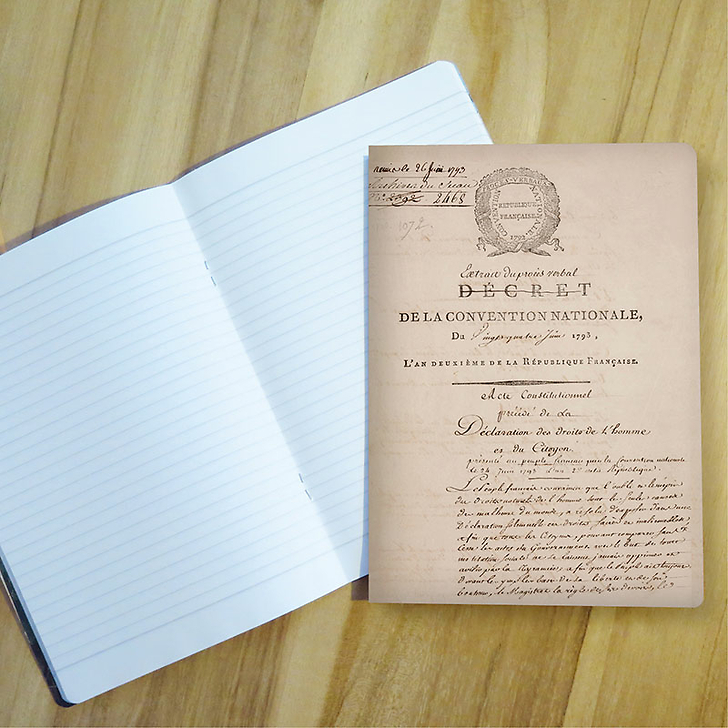 remis le 26 Juin 1793
Archives du Sceau
N.° 2392 2468
1072.
PROCES-VERBAUX
CONVENTION NATIONALE.
RÉPUBLIQUE
FRANÇAISE.
1792
Extrait du procès verbal
DÉCRET
DE LA CONVENTION NATIONALE,
Du Vingt quatre Juin 1793,
L'AN DEUXIÈME DE LA RÉPUBLIQUE FRANÇAISE.
Acte Constitutionnel
précédé de La
Déclaration des droits de l'homme
et du Citoyen
présenté au peuple français par la Convention nationale
le 24 Juin 1793 l'an 2.e de la République.
Le Peuple français convaincu que l'oubli et le mépris
des Droits naturels de l'homme sont les seules causes
des malheurs du monde, a résolu, d'exposer dans une
Déclaration solemnelle ces droits sacrés et inaliénables
afin que tous les Citoyens, pouvant comparer sans
cesse les actes du Gouvernement avec le but de toute
institution sociale ne se laissent jamais opprimer et
avilir par la tyrannie; afin que le peuple ait toujours
devant les yeux les bases de sa liberté et de son
bonheur, le Magistrat la règle de ses devoirs, le